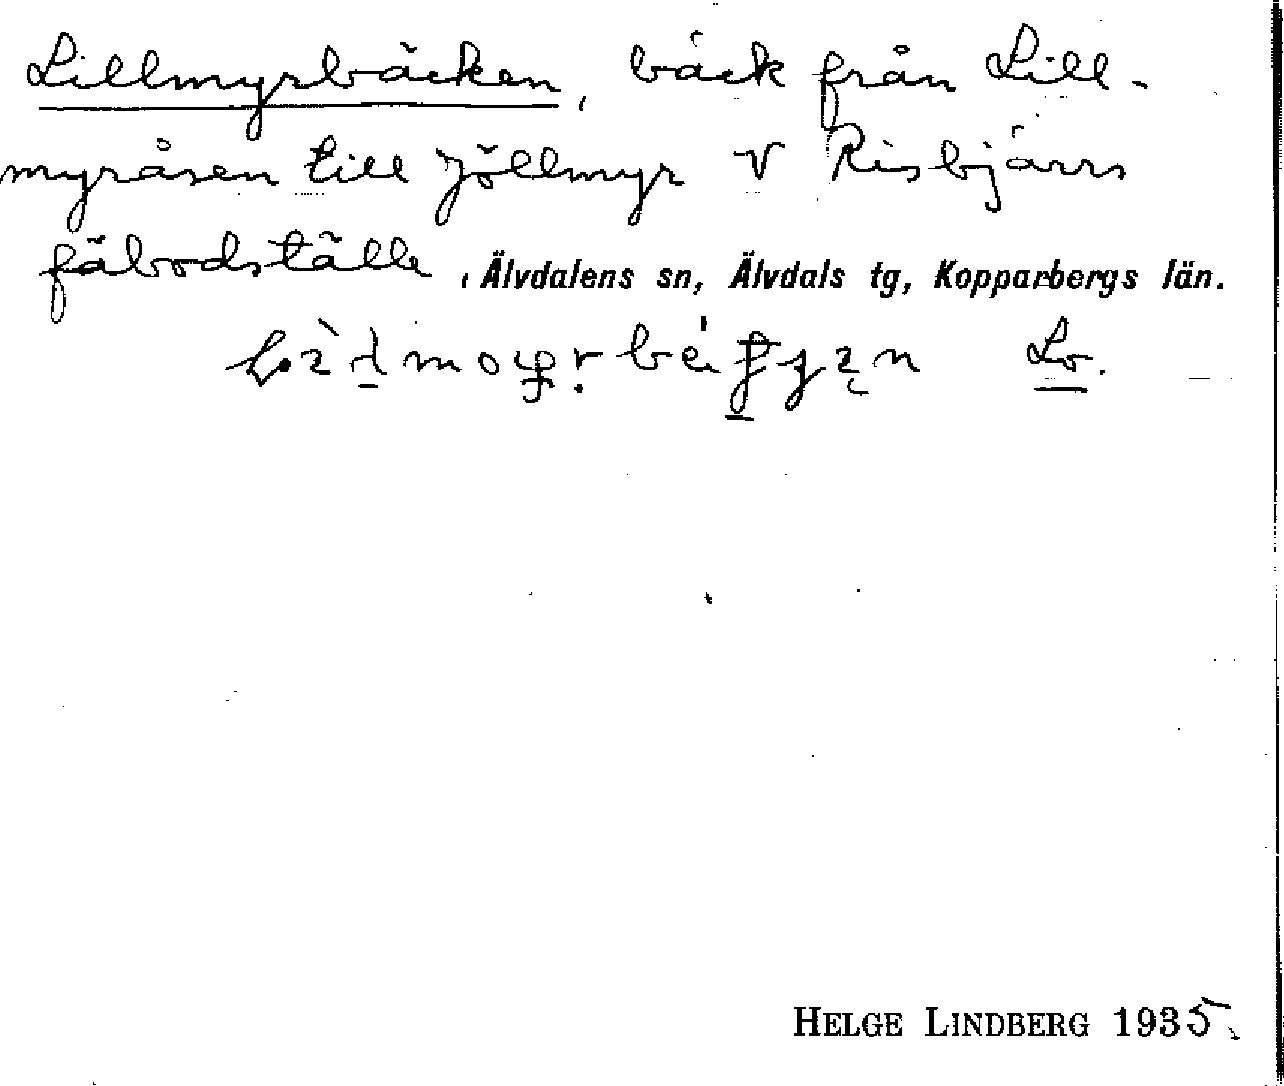 Lillmyrbäcken, bäck från Lill-
myråsen till Jöllmyr V Risbjärs
fäbodställe, Älvdalens sn, Älvdals tg, Kopparbergs län.
Lo.
HELGE LINDBERG 1935.